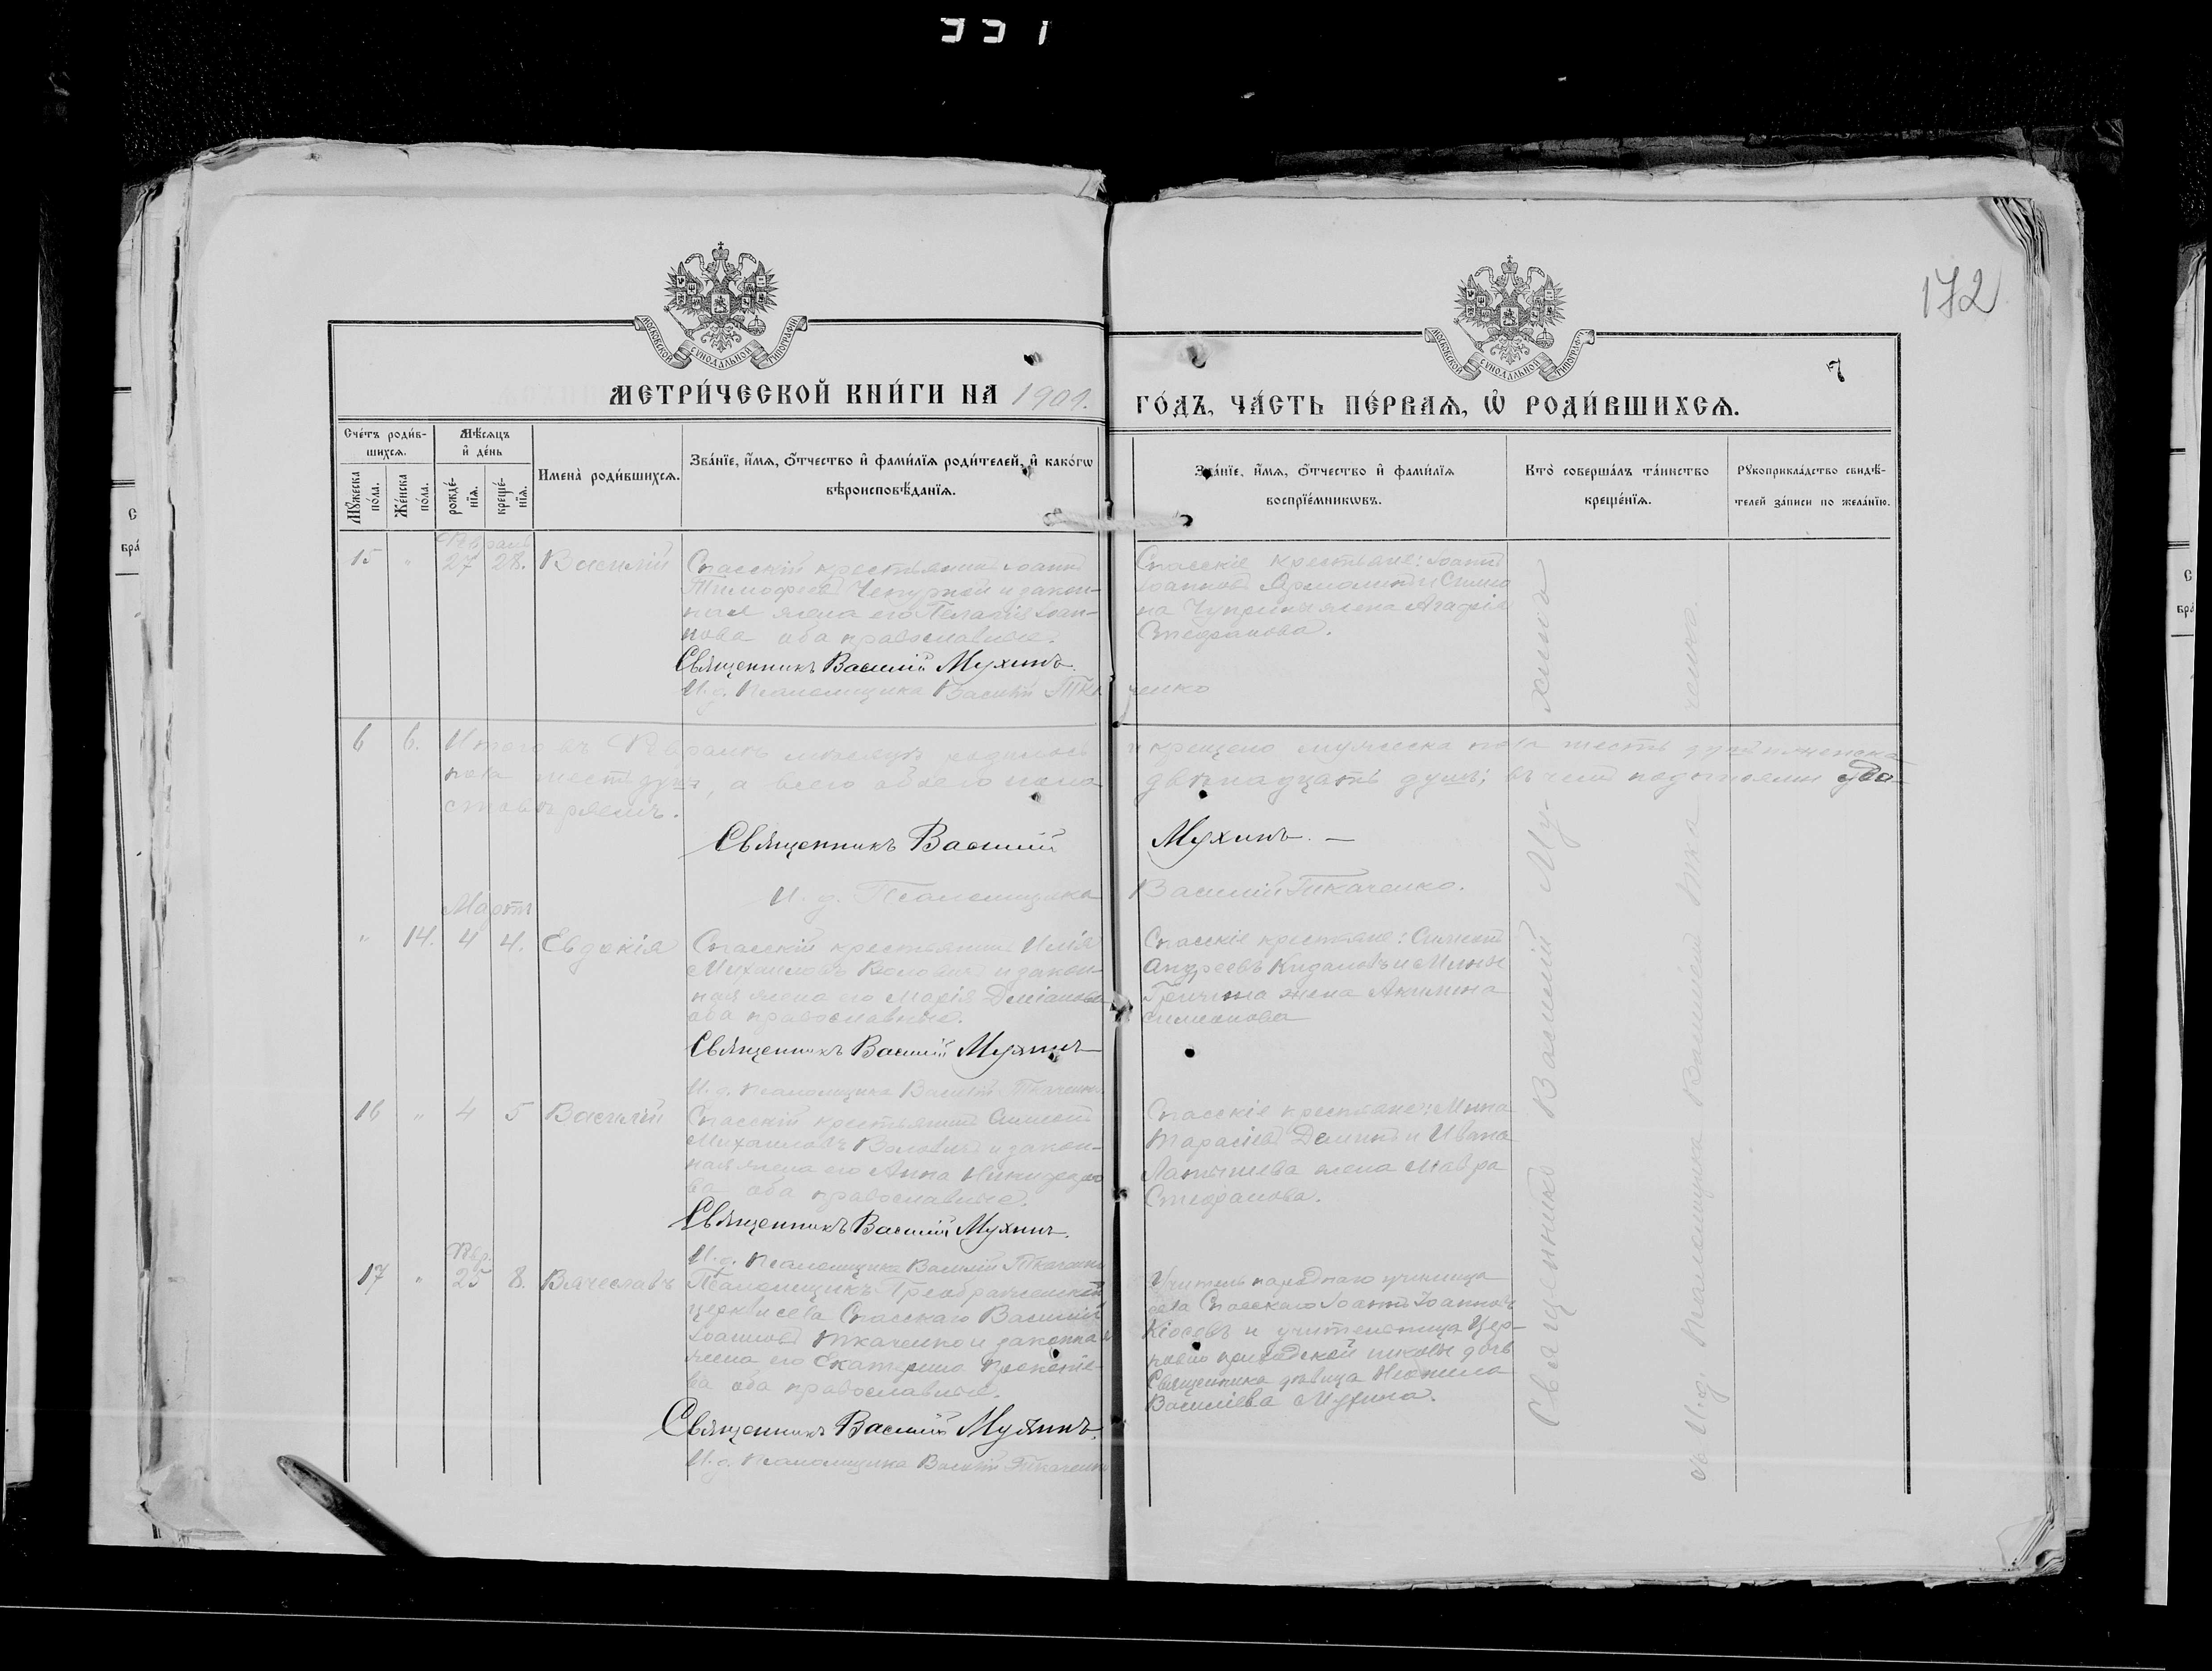 172
7
МОСКОВСКОЙ СУНОДАЛЬНОЙ ТИПОГРАФІИ
МОСКОВСКОЙ СУНОДАЛЬНОЙ ТИПОГРАФІИ
МЕТРИ́ЧЕСКОЙ КНИ́ГИ НА 1901. ГО́ДЪ, ЧА́СТЬ ПЕ́РВАѦ, Ѡ҆ РОДИ́ВШИХСѦ.
Сче́тъ роди́в-
шихсѧ.
Мꙋ́жеска по́ла.
Же́нска по́ла.
Мѣ́сѧцъ и҆ де́нь
рожде́-нїѧ.
креще́-нїѧ.
Имена̀ роди́вшихсѧ.
Зва́нїе, и҆́мѧ, ѻ҆́тчество и҆ фами́лїѧ роди́телей, и҆ како́гѡ
вѣроисповѣ́данїѧ.
Зва́нїе, и҆́мѧ, ѻ҆́тчество и҆ фами́лїѧ
воспрїе́мникѡвъ.
Кто̀ соверша́лъ та́инство
креще́нїѧ.
Рꙋкоприкла́дство свидѣ́-
телей за́писи по жела́нїю.
Февраль
15 " 27 28. Василій
Спасскій крестьянинъ Іоаннъ
Тимофеевъ Чепурной и закон-
ная жена его Пелагія Іоан-
нова оба православные.
Священникъ Василій Мухинъ.
И. д. Псаломщика Василій Ткаченко
Спасскіе крестьяне: Іоаннъ
Іоанновъ Ярмолинъ и Симео
на Чуприны жена Агафія
Стефанова.
6 6. Итого въ Февралѣ мѣсяцѣ родилось и крещено мужеска пола шесть душъ и женска
пола шесть душъ, а всего обоего пола двѣнадцать душъ; въ чемъ подписями удо-
стовѣряемъ.
Священникъ Василій Мухинъ. —
И. д. Псаломщика Василій Ткаченко.
Мартъ
" 14. 4 4. Евдокія
Спасскій крестьянинъ Илія
Михаиловъ Воловикъ и закон-
ная жена его Марія Даміанова
оба православные.
Священникъ Василій Мухинъ
И. д. Псаломщика Василій Ткаченко
Спасскіе крестьяне: Симеонъ
Андреевъ и Мины
жена Акилина
Симеонова
16 " 4 5 Василій
Спасскій крестьянинъ Симеонъ
Михаиловъ Воловикъ и закон-
ная жена его Анна Никифоро
ва оба православные.
Священникъ Василій Мухинъ.
И. д. Псаломщика Василій Ткаченко
Спасскіе крестьяне: Мина
Тарасіевъ Деминъ и Ивана
Латышева жена Мавра
Стефанова.
Февр.
17 " 25 8. Вячеславъ
Псаломщикъ Преображенской
церкви села Спасскаго Василій
Іоанновъ Ткаченко и законная
жена его Екатерина
ва оба православные.
Священникъ Василій Мухинъ.
И. д. Псаломщика Василій Ткаченко
Учитель народнаго училища
села Спасскаго Іоаннъ Іоанновъ
Кіосевъ и учительница Цер-
ковно приходской школы дочь
Священника дѣвица Неонила
Василіева Мухина.
Священникъ Василій Мухинъ
И. д. Псаломщика Василій Ткаченко.